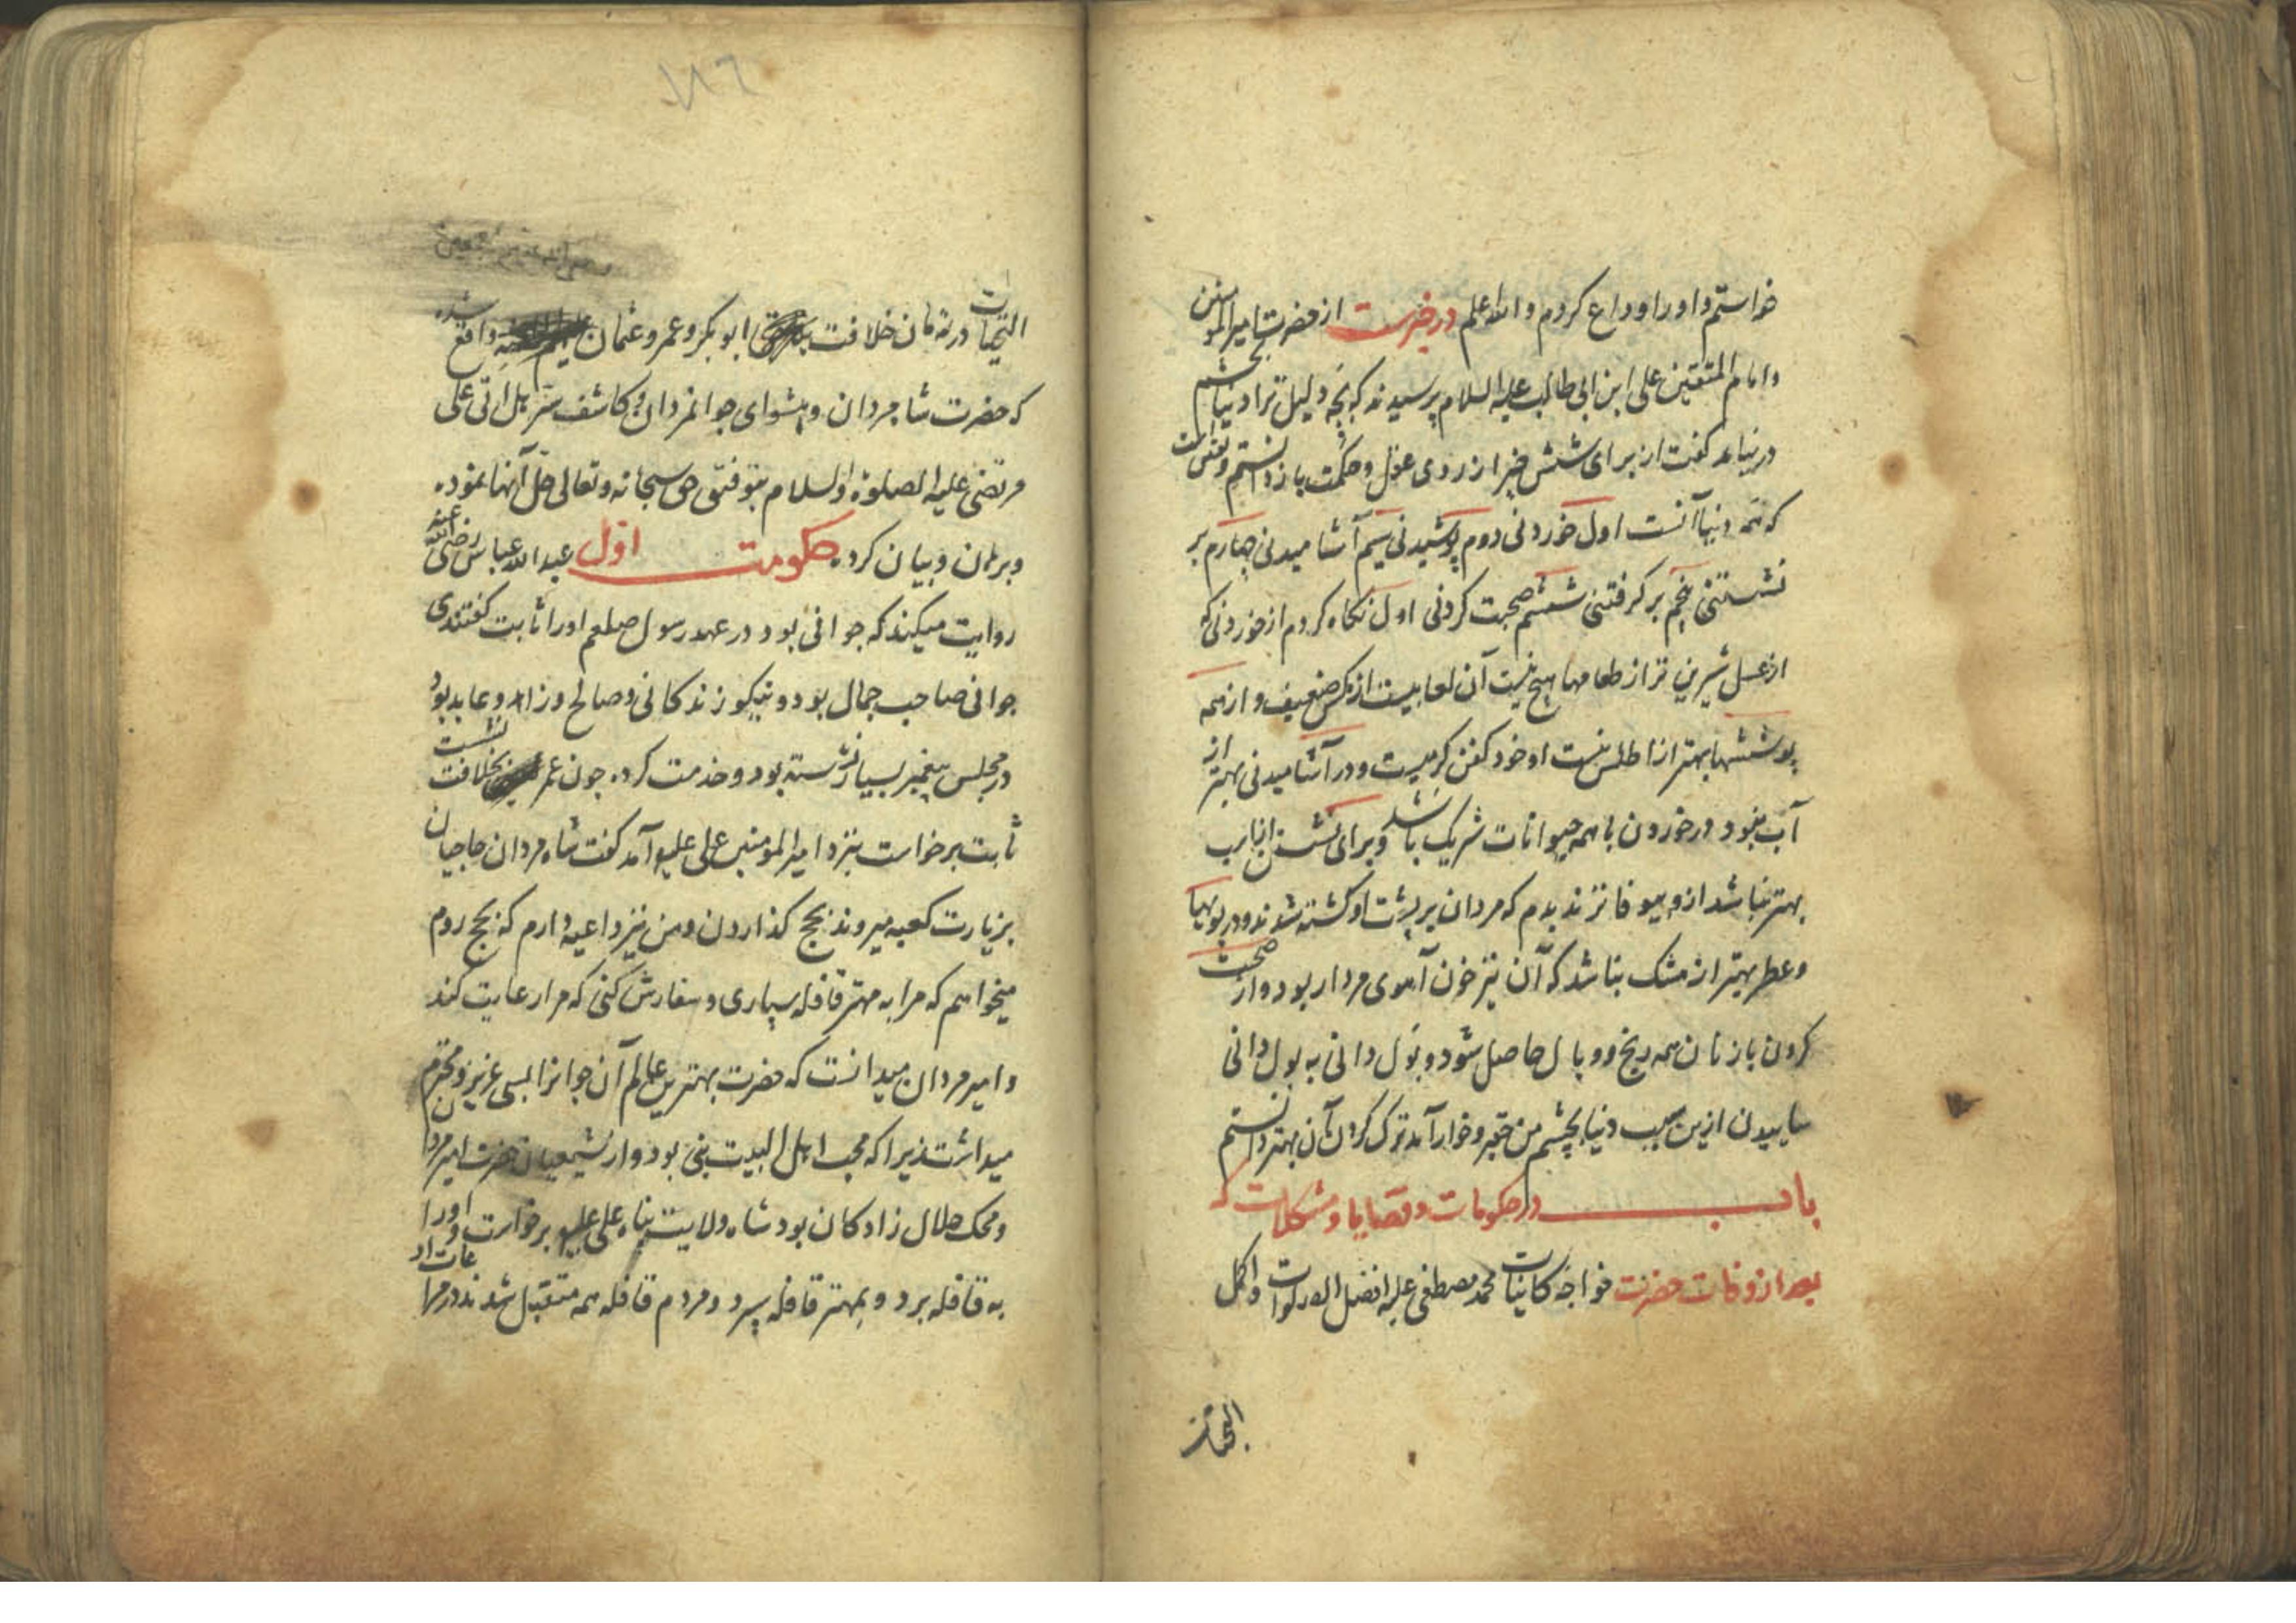 خواستم و اورا وداع کردم والله اعلم در خبرست از حضرت امیرالمومنین
وامام المتقین علی ابن ابی طالب علیه السلام پرسیدند که بچه دلیل ترا دنیا بچشم
درنیامد گفت از برای شش چیز از روی عقل و حکمت باز دانستم
که همه دنیا آنست اول خوردنی دوم پوشیدنی سیم آشامیدنی چهارم بر
نشستنی پنجم بر گرفتنی ششم صحبت کردنی اول نگاه کردم از خوردنی که
از عسل شیرین تر از طعامها هیچ نیست آن لعابیست از مگس ضعیف و از همه
پوششها بهتر از اطلس نیست او خود کفن کرمیست و در آشامیدنی بهتر از
آب نبود در خوردن با همه حیوانات شریک باشد و برای نشستن از اسب
بهتر نباشد از و بیوفاتر ندیدم که مردان بر پشت او کشته شوند و در بویها
و عطر بهتر از مشک نباشد که آن نیز خون آهوی مردار بود و از صحبت
کردن با زنان همه رنج و وبال حاصل شود و بول دانی به بول دانی
ساییدن ازین سبب دنیا بچشم من حقیر و خوار آمد ترک کردن آن بهتر دانستم
باب در حکومات و قضایا و مشکلات که
بعد از وفات حضرت خواجه کاینات محمد مصطفی علیه افضل الصلوات و اکمل
التحیات
۱۸۶
رضی الله عنهم اجمعین
التحیات در زمان خلافت ابوبکر و عمر و عثمان واقع شده
که حضرت شاه مردان و پیشوای جوانمردان و کاشف سر هل اتی علی
مرتضی علیه الصلوة والسلام بتوفیق حق سبحانه و تعالی حل آنها نموده
و برهان و بیان کرده حکومت اول عبدالله عباس رضی الله عنه
روایت میکند که جوانی بود در عهد رسول صلعم اورا ثابت گفتندی
جوانی صاحب جمال بود و نیکو زندکانی و صالح و زاهد و عابد بود
در مجلس پیغمبر بسیار نشسته بود و خدمت کرده چون عمر بخلافت نشست
ثابت برخواست بنزد امیرالمومنین علی علیه آمد گفت شاه مردان حاجیان
بزیارت کعبه میروند بحج کذاردن و من نیز داعیه دارم که بحج روم
میخواهم که مرا به مهتر قافله سپاری و سفارش کنی که مرا رعایت کند
و امیر مردان میدانست که حضرت بهترین عالم آن جوانرا بسی عزیز و محترم
میداشت زیرا که محب اهل البیت نبی بود و از شیعیان حضرت امیر مردان
و محک حلال زادکان بود شاه ولایت پناه علی علیه برخواست و اورا
به قافله برد و بمهتر قافله سپرد و مردم قافله همه متقبل شدند در مراعات او